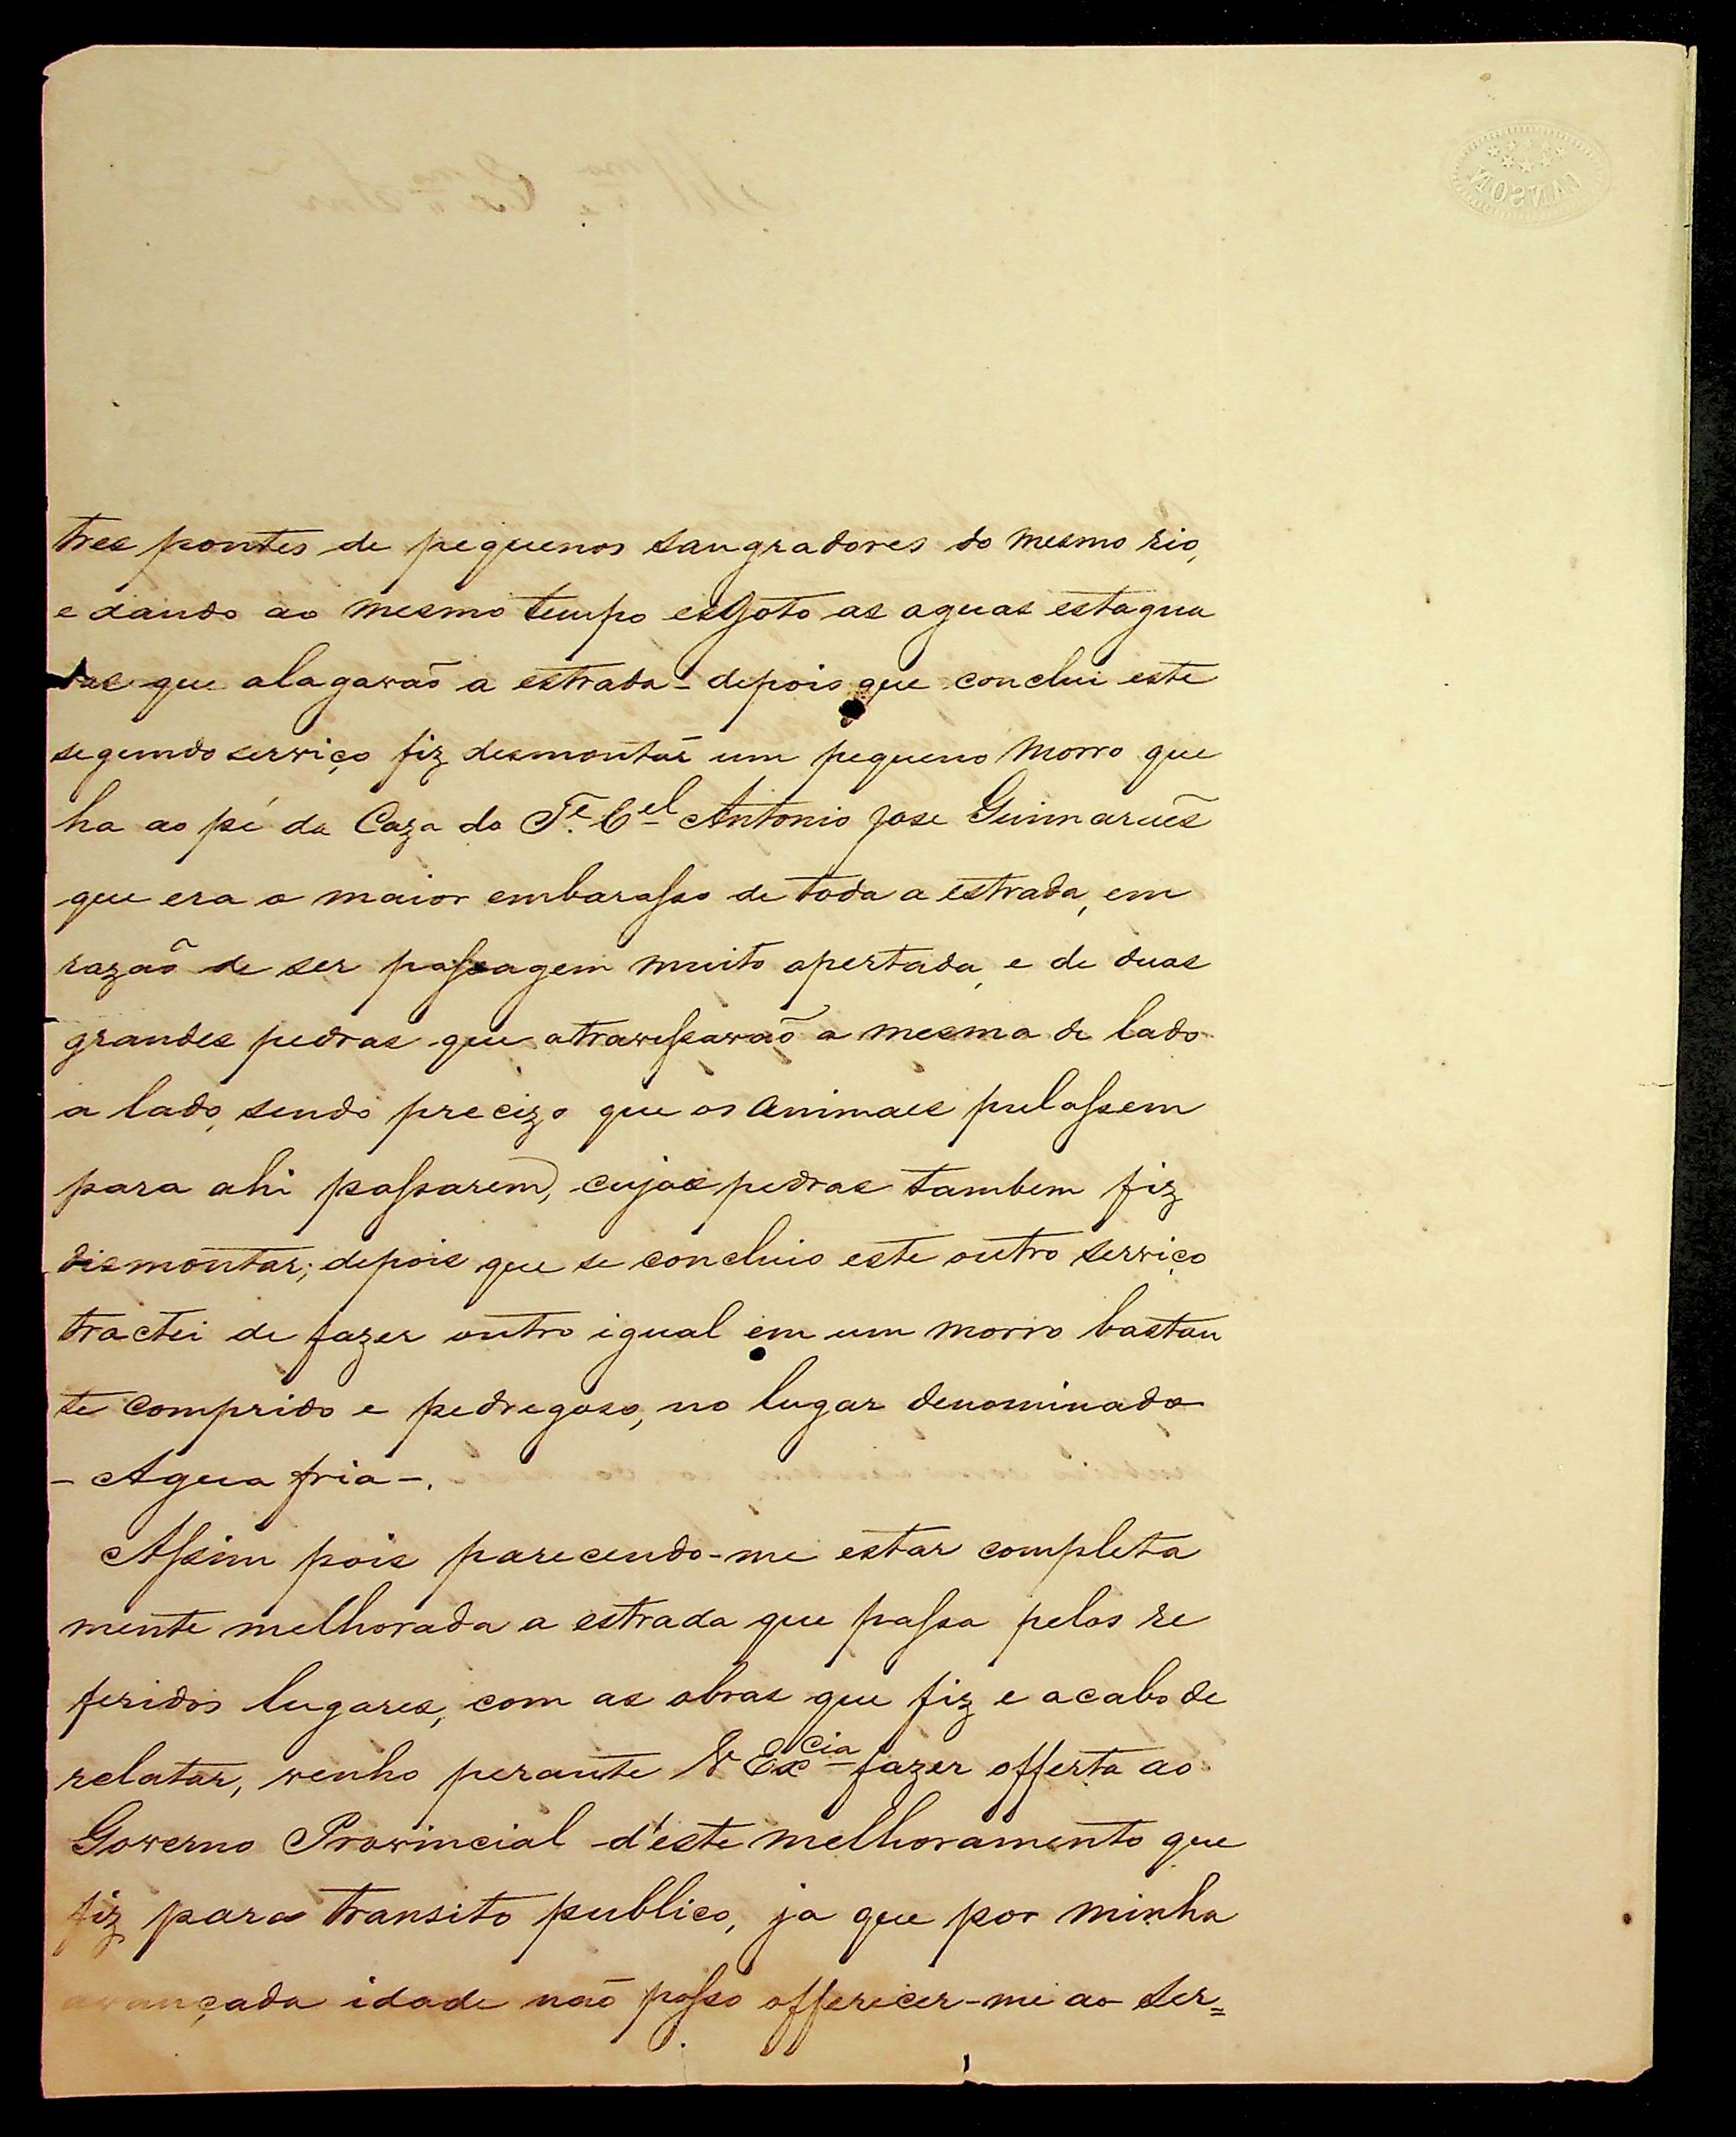 tres pontes de pequenos sangradores do mesmo rio,
e dando ao mesmo tempo esgoto as aguas estagna
das que alagavaõ a estrada - depois que conclui este
segundo serviço fiz desmontar um pequeno morro que
ha ao pé da Caza do Te. Cel Antonio Jose Guimarães
que era o maior embarasso de toda a estrada, em
razaõ de ser passagem muito apertada, e de duas
grandes pedras que atravessavaõ a mesma de lado
a lado, sendo precizo que os animaes pulassem
para ahi passarem, cujas pedras tambem fiz
dismontar; depois que se concluio este outro serviço
tractei de fazer outro igual em um morro bastan
te comprido e pedregoso, no lugar denominado
- Agua fria -.
Assim pois parecendo-me estar completa
mente melhorada a estrada que passa pelos re
feridos lugares, com as obras que fiz e acabo de
relatar, venho perante V Excia fazer offerta ao
Governo Provincial d'este melhoramento que
fiz para transito publico, ja que por minha
avançada idade naõ posso offerecer-me ao ser=